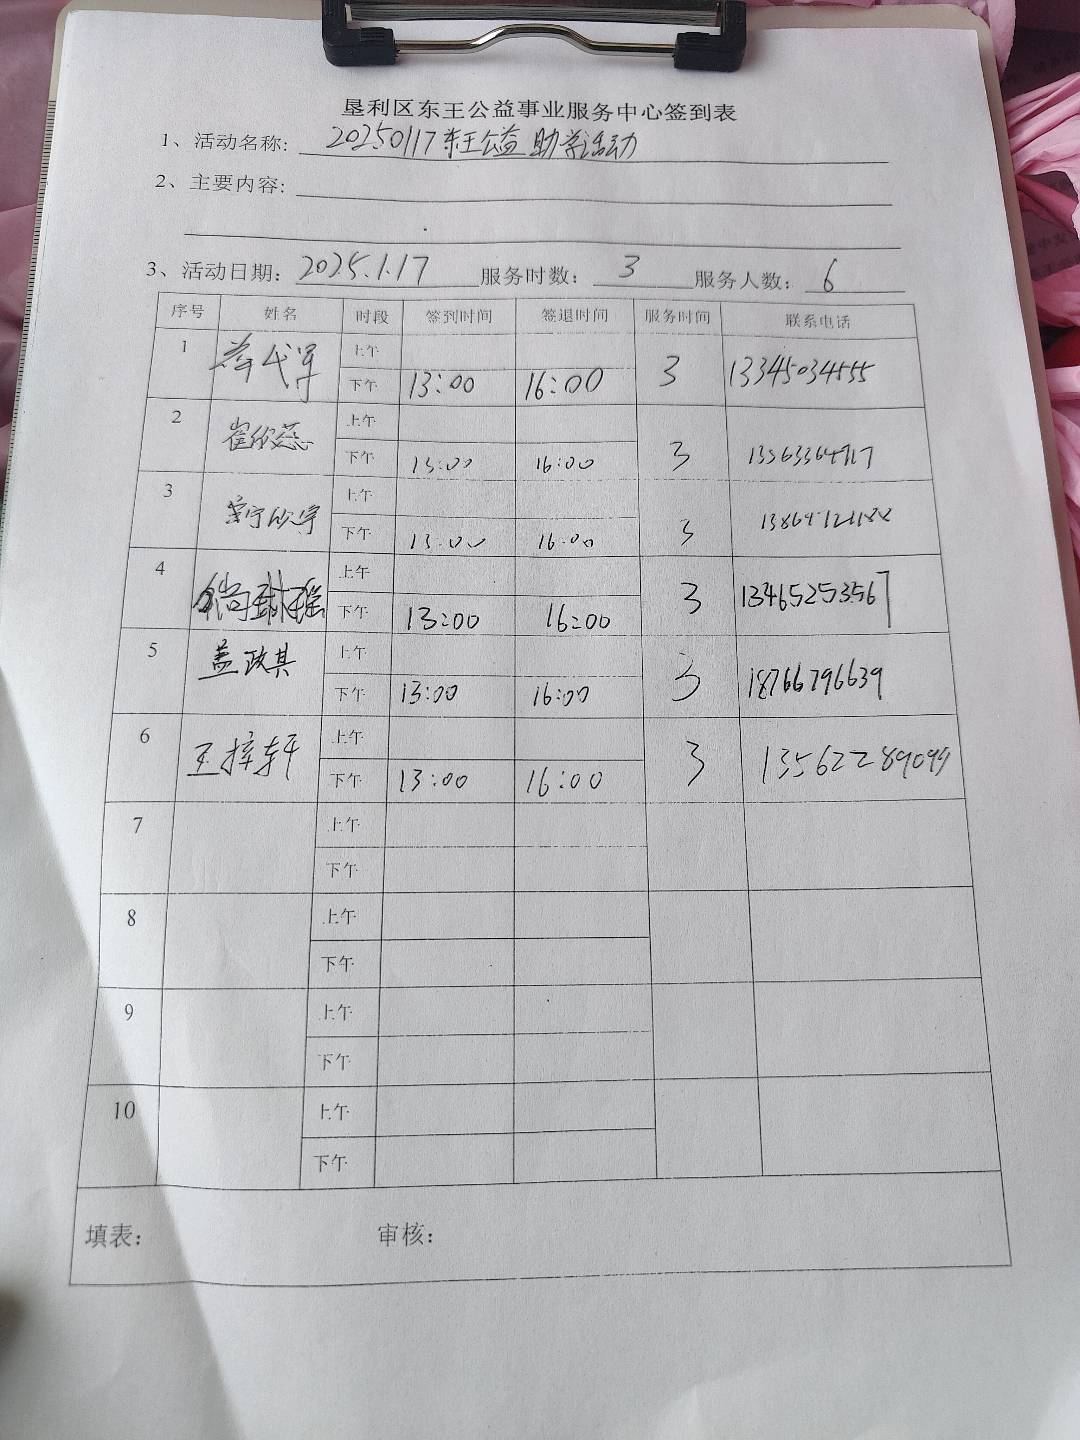 垦利区东王公益事业服务中心签到表
1、活动名称: 20250117东王公益助学活动
2、主要内容:
3、活动日期: 2025.1.17 服务时数: 3 服务人数: 6
序号 姓名 时段 签到时间 签退时间 服务时间 联系电话
1 上午
下午 13:00 16:00 3 13345034555
2 崔欣蕊 上午
下午 13:00 16:00 3
3 上午
下午 13:00 16:00 3
4 上午
下午 13:00 16:00 3 13465253567
5 盖政其 上午
下午 13:00 16:00 3 18766796639
6 王梓轩 上午
下午 13:00 16:00 3 13562289099
7 上午
下午
8 上午
下午
9 上午
下午
10 上午
下午
填表: 审核: